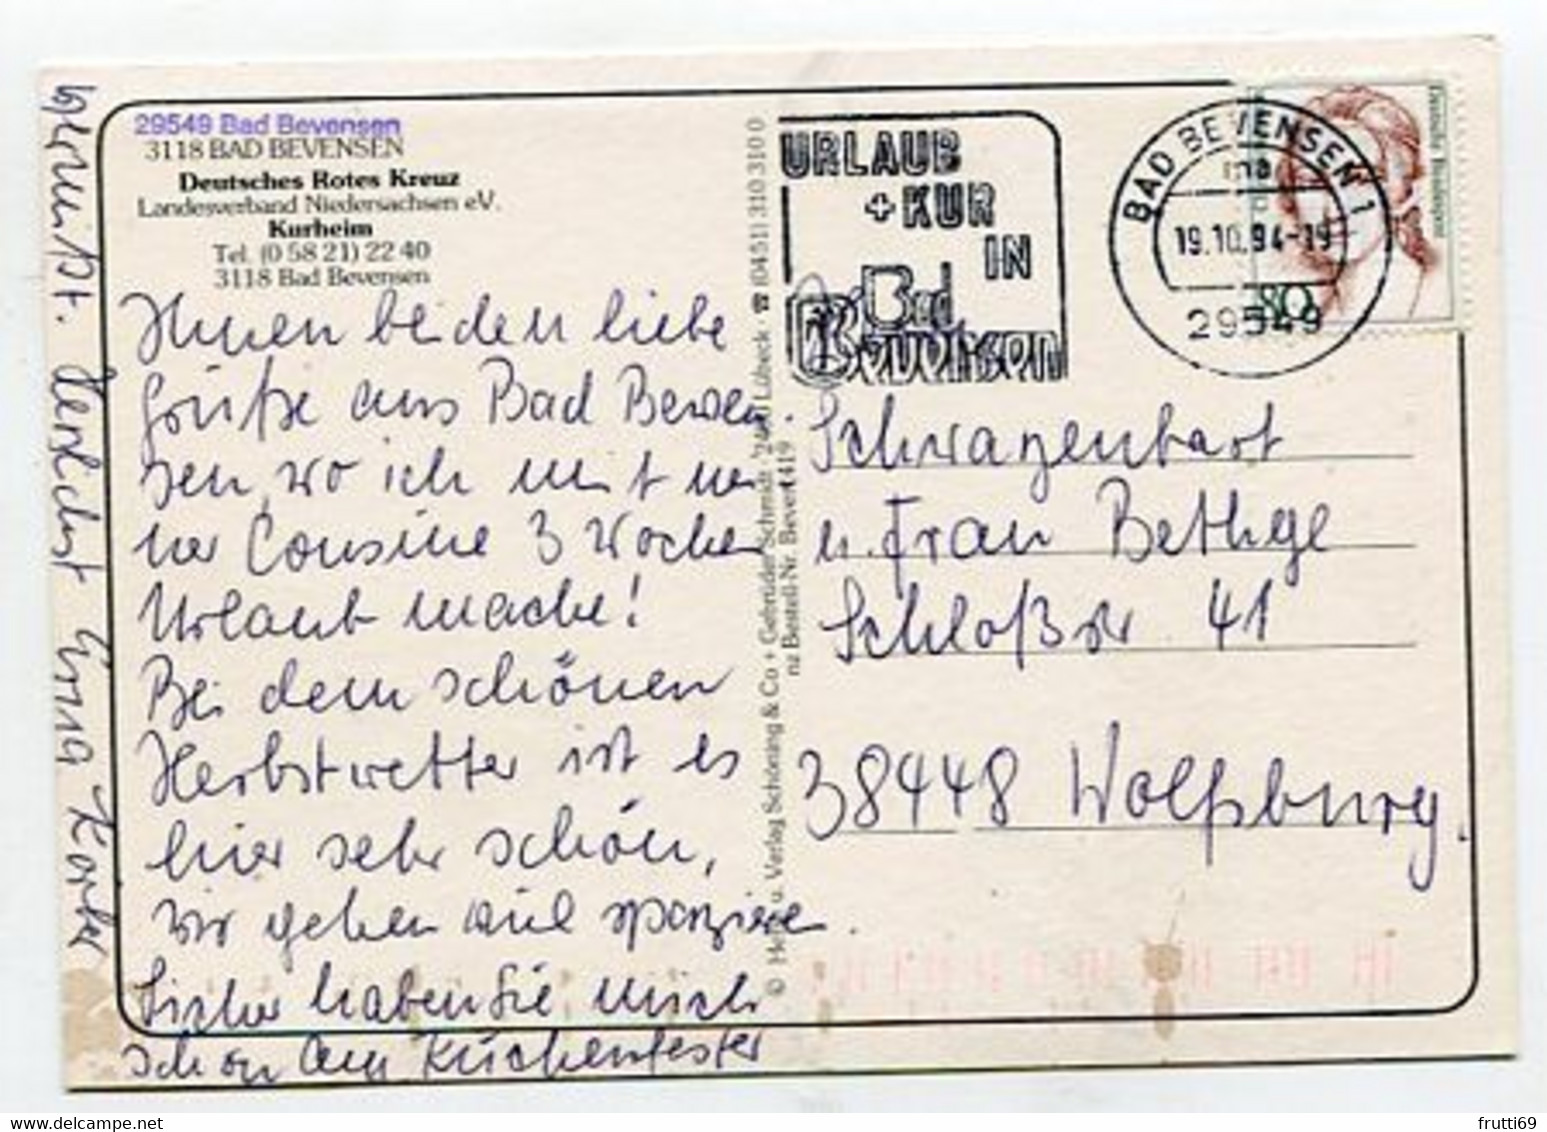 29549 Bad Bevensen
3118 BAD BEVENSEN
Deutsches Rotes Kreuz
Landesverband Niedersachsen eV.
Kurheim
Tel. (0 58 21) 22 40
3118 Bad Bevensen
Ihnen beiden liebe
Grüße aus Bad Beven
sen, wo ich mit mei
ner Cousine 3 Wochen
Urlaub mache!
Bei dem schönen
Herbstwetter ist es
hier sehr schön,
wir gehen viel spazieren.
Sicher haben Sie mich
schon am Küchenfester
vermißt. Herzlichst Erna Korber
© u. Verlag Schöning & Co + Gebrüder Schmidt · 2400 Lübeck · ☎ (04 51) 3 10 31 0
Bestell-Nr. Beven 1419
URLAUB
+ KUR
IN
Bad
Bevensen
BAD BEVENSEN 1
ma
19.10.94-19
29549
Deutsche Bundespost
80
Schwagenbart
u. Frau Bethge
Schloßstr 41
38448 Wolfsburg.
frutti69